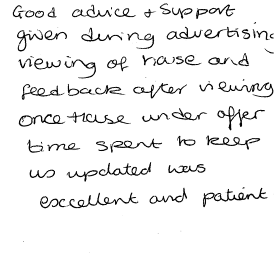 Good advice + Support
given during advertising
viewing of house and
feedback after viewing
once House under offer
time spent to keep
us updated was
excellent and patient